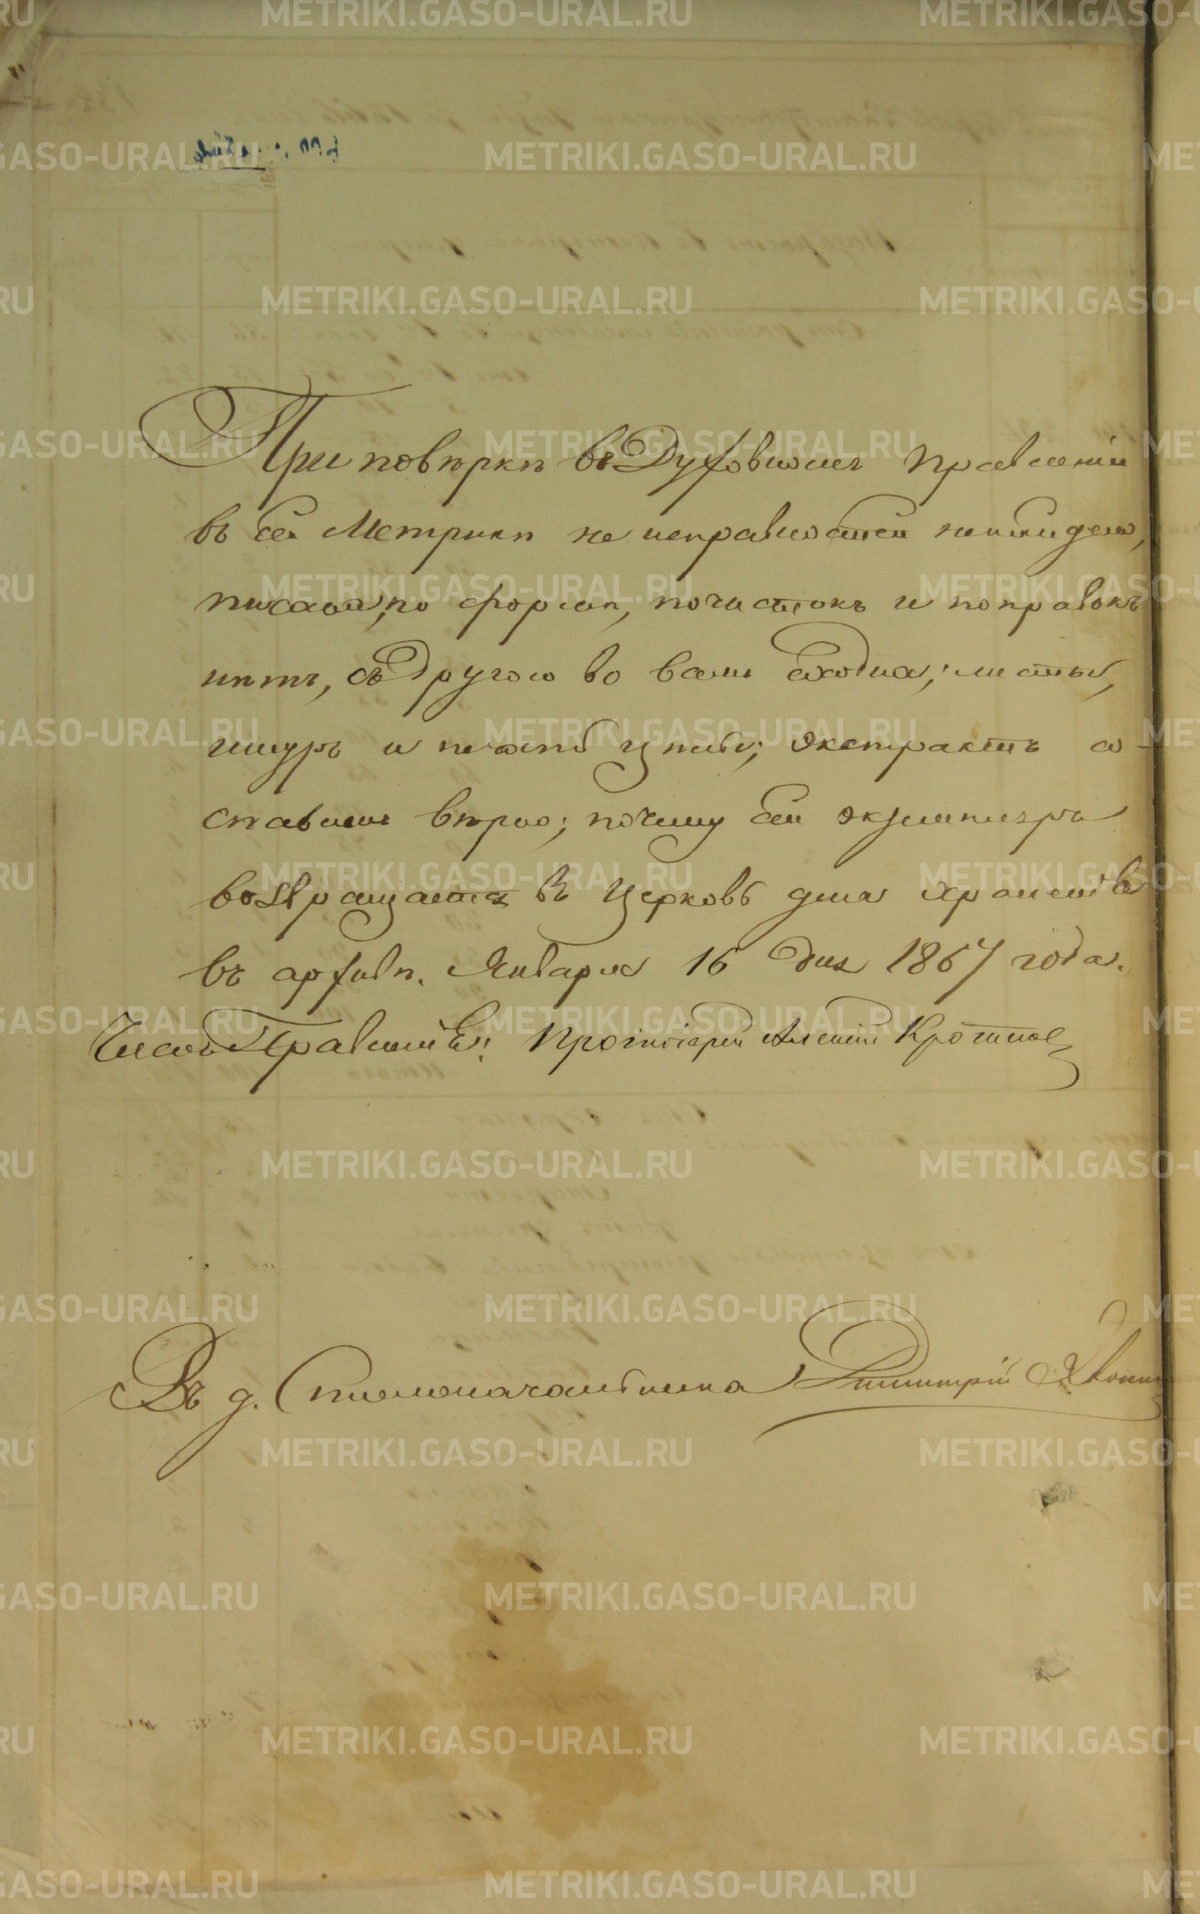 При повѣркѣ въ Духовномъ Правленіи
въ сей Метрикѣ не исправностей не найдено,
писана, по формѣ, почистокъ и поправокъ
нѣтъ, съ Другою во всемъ сходна; листы,
шнуръ и печать цѣлы; экстрактъ со-
ставленъ вѣрно; почему сей экземпляръ
возвращается въ Церковь для храненія
въ архивѣ. Января 16 дня 1867 года.
Членъ Правленія: Протоіерей Алексій
Въ д. Столоначальника Димитрій
METRIKI.GASO-URAL.RU